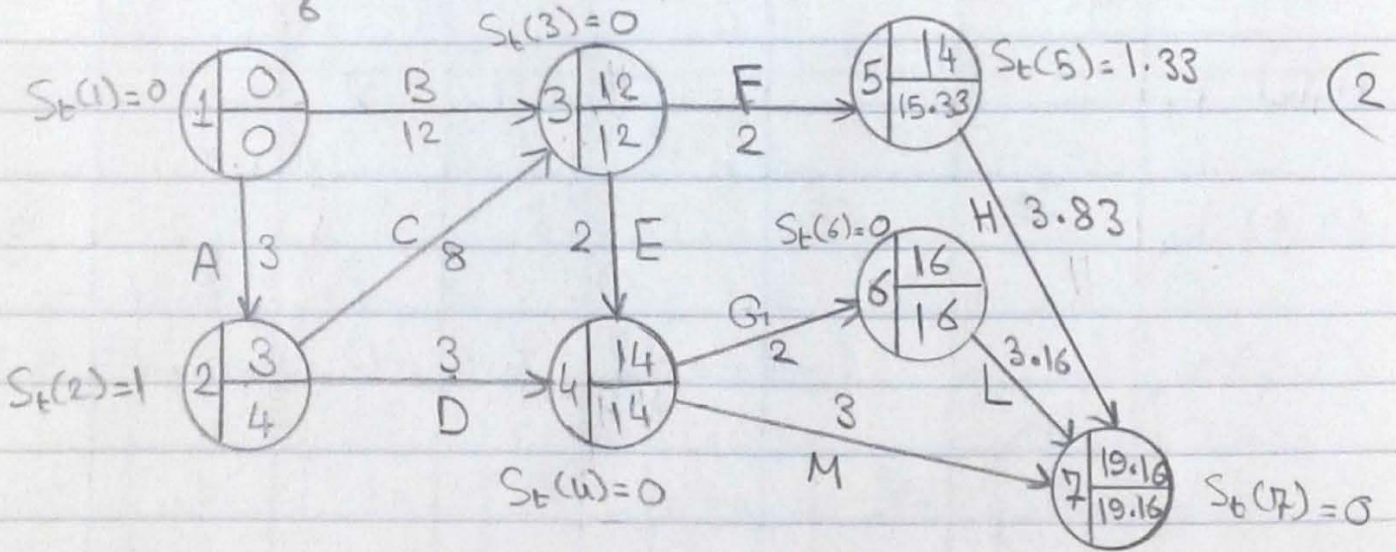 6
S_t(3)=0
S_t(1)=0
1 0 0
B
12
3 12 12
F
2
5 14 15.33
S_t(5)=1.33
2
A 3
C
8
2 E
S_t(6)=0
6 16 16
H 3.83
S_t(2)=1
2 3 4
3
D
4 14 14
G
2
3.16
L
3
M
S_t(4)=0
7 19.16 19.16
S_t(7)=0